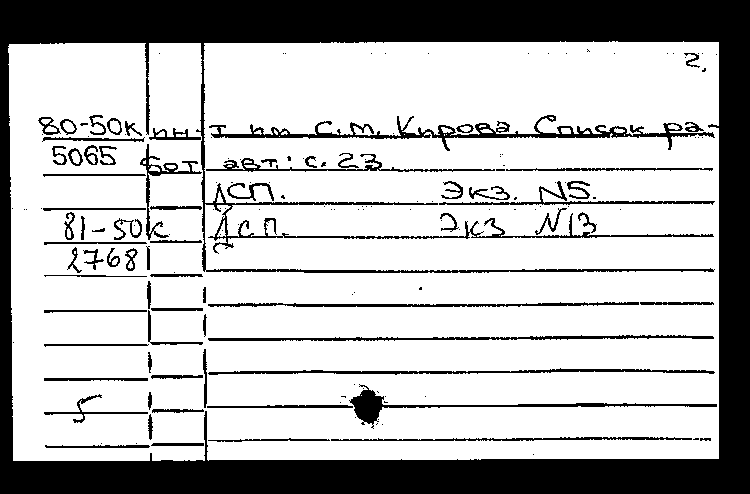 2.
80-50к ин-т им С.М. Кирова. Список ра-
5065 бот авт: с. 23.
ДСП. Экз. N5.
81-50к Дсп. Экз N13
2768
5